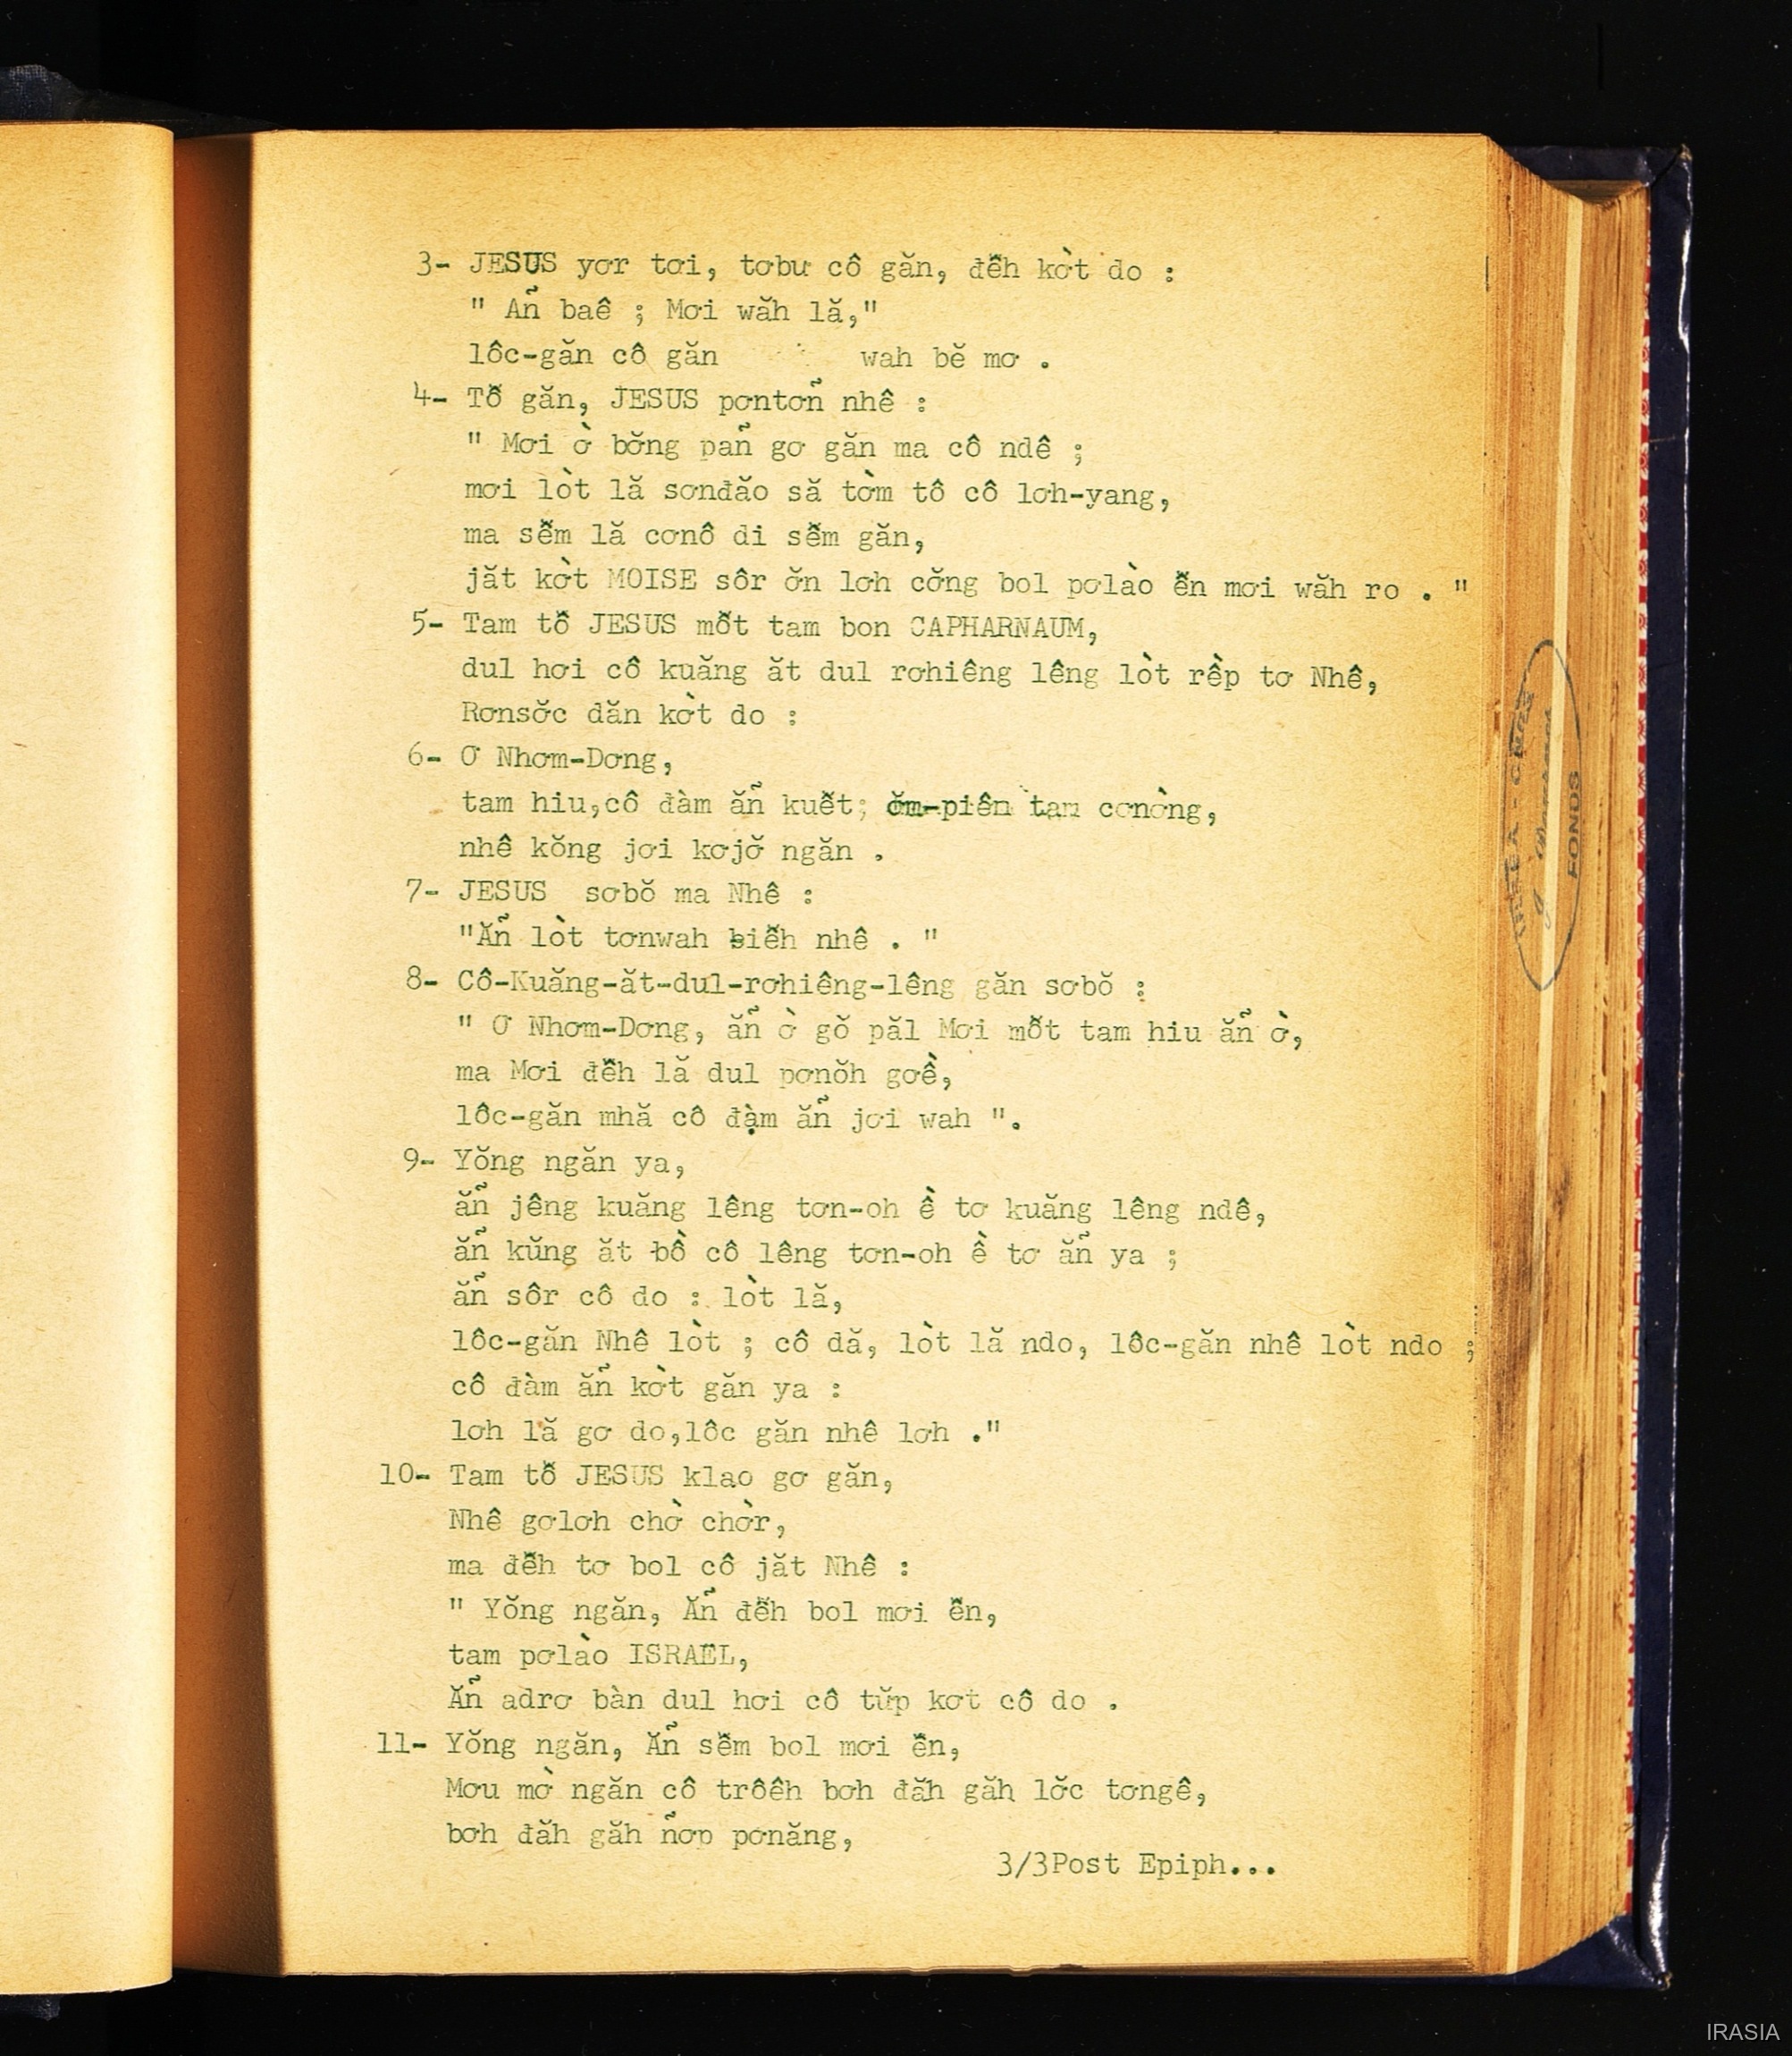 3- JESUS yơr tơi, tơbư cô găn, đê̆h kờt do :
" Ăñ baê ; Mơi wăh lă,"
lôc-găn cô găn wah bĕ mơ .
4- Tô̆ găn, JESUS pơntơñ nhê :
" Mơi ờ bơ̆ng pañ gơ găn ma cô ndê ;
mơi lòt lă sơnđăo să tờm tô cô lơh-yang,
ma sê̆m lă cơnô di sê̆m găn,
jăt kờt MOISE sôr ơ̆n lơh cơ̆ng bol pơlào ê̆n mơi wăh ro . "
5- Tam tô̆ JESUS mô̆t tam bon CAPHARNAUM,
dul hơi cô kuăng ăt dul rơhiêng lêng lòt rềp tơ Nhê,
Rơnsơ̆c dăn kờt do :
6- Ơ Nhơm-Dơng,
tam hiu,cô đàm ăñ kuê̆t; ơ̆m-piên tam cơnờng,
nhê kŏng jơi kơjơ̆ ngăn .
7- JESUS sơbŏ ma Nhê :
"Ăñ lòt tơnwah biê̆h nhê . "
8- Cô-Kuăng-ăt-dul-rơhiêng-lêng găn sơbŏ :
" Ơ Nhơm-Dơng, ăñ ờ gŏ păl Mơi mô̆t tam hiu ăñ ờ,
ma Mơi đê̆h lă dul pơnŏh gơề,
lôc-găn mhă cô đàm ăñ jơi wah ".
9- Yŏng ngăn ya,
ăñ jêng kuăng lêng tơn-oh ề tơ kuăng lêng ndê,
ăñ kŭng ăt bồ cô lêng tơn-oh ề tơ ăñ ya ;
ăñ sôr cô do : lòt lă,
lôc-găn Nhê lòt ; cô dă, lòt lă ndo, lôc-găn nhê lòt ndo ;
cô đàm ăñ kờt găn ya :
lơh lă gơ do,lôc găn nhê lơh ."
10- Tam tô̆ JESUS klao gơ găn,
Nhê gơlơh chờ chờr,
ma đê̆h tơ bol cô jăt Nhê :
" Yŏng ngăn, Ăñ đê̆h bol mơi ê̆n,
tam pơlào ISRAEL,
Ăñ adrơ bàn dul hơi cô tŭp kơt cô do .
11- Yŏng ngăn, Ăñ sê̆m bol mơi ê̆n,
Mơu mờ ngăn cô trôêh bơh đăh găh lơ̆c tơngê,
bơh đăh găh ñơp pơnăng,
3/3Post Epiph...
FONDS
IRASIA